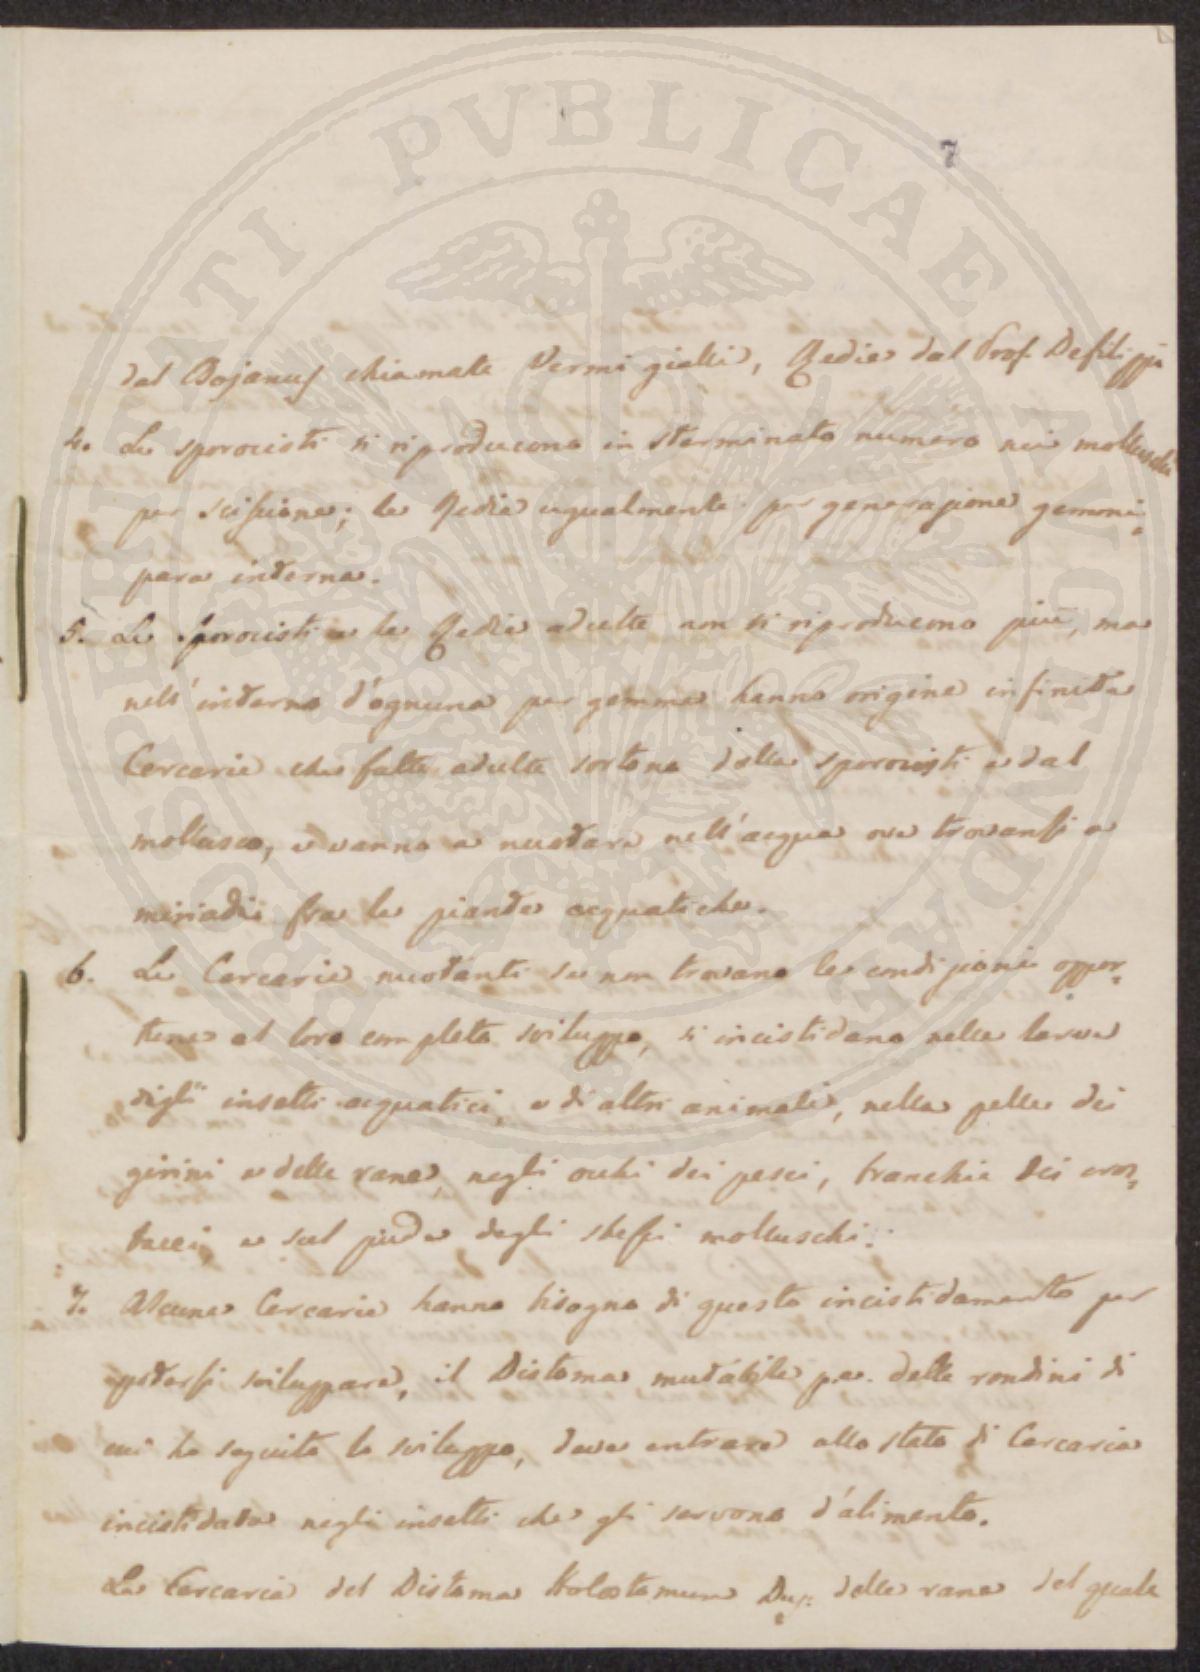 7
dal Bojanus chiamate Vermi gialli, Redie dal Prof. Defilippi
4. Le sporocisti si riproducono in sterminato numero nei molluschi
per scissione; le Redie ugualmente per generazione gemmi-
para interna.
5. Le Sporocisti e le Redie adulte non si riproducono più, ma
nell'interno d'ognuna per gemma hanno origine infinite
Cercarie che fatte adulte sortono dalle sporocisti e dal
mollusco, e vanno a nuotare nell'acqua ove trovansi a
miriadi fra le piante acquatiche.
6. Le Cercarie nuotanti se non trovano le condizioni oppor-
tune al loro completo sviluppo, si incistidano nelle larve
degli insetti acquatici, e di altri animali, nella pelle dei
girini e delle rane, negli occhi dei pesci, branchie dei cros-
tacei, e sul piede degli stessi molluschi.
7. Alcune Cercarie hanno bisogno di questo incistidamento per
potersi sviluppare, il Distoma mutabile p.e. delle rondini di
cui ho seguito lo sviluppo, deve entrare allo stato di Cercaria
incistidata negli insetti che gli servono d'alimento.
La Cercaria del Distoma Duj. delle rane del quale
PROSPERITATI PVBLICAE AVGENDAE